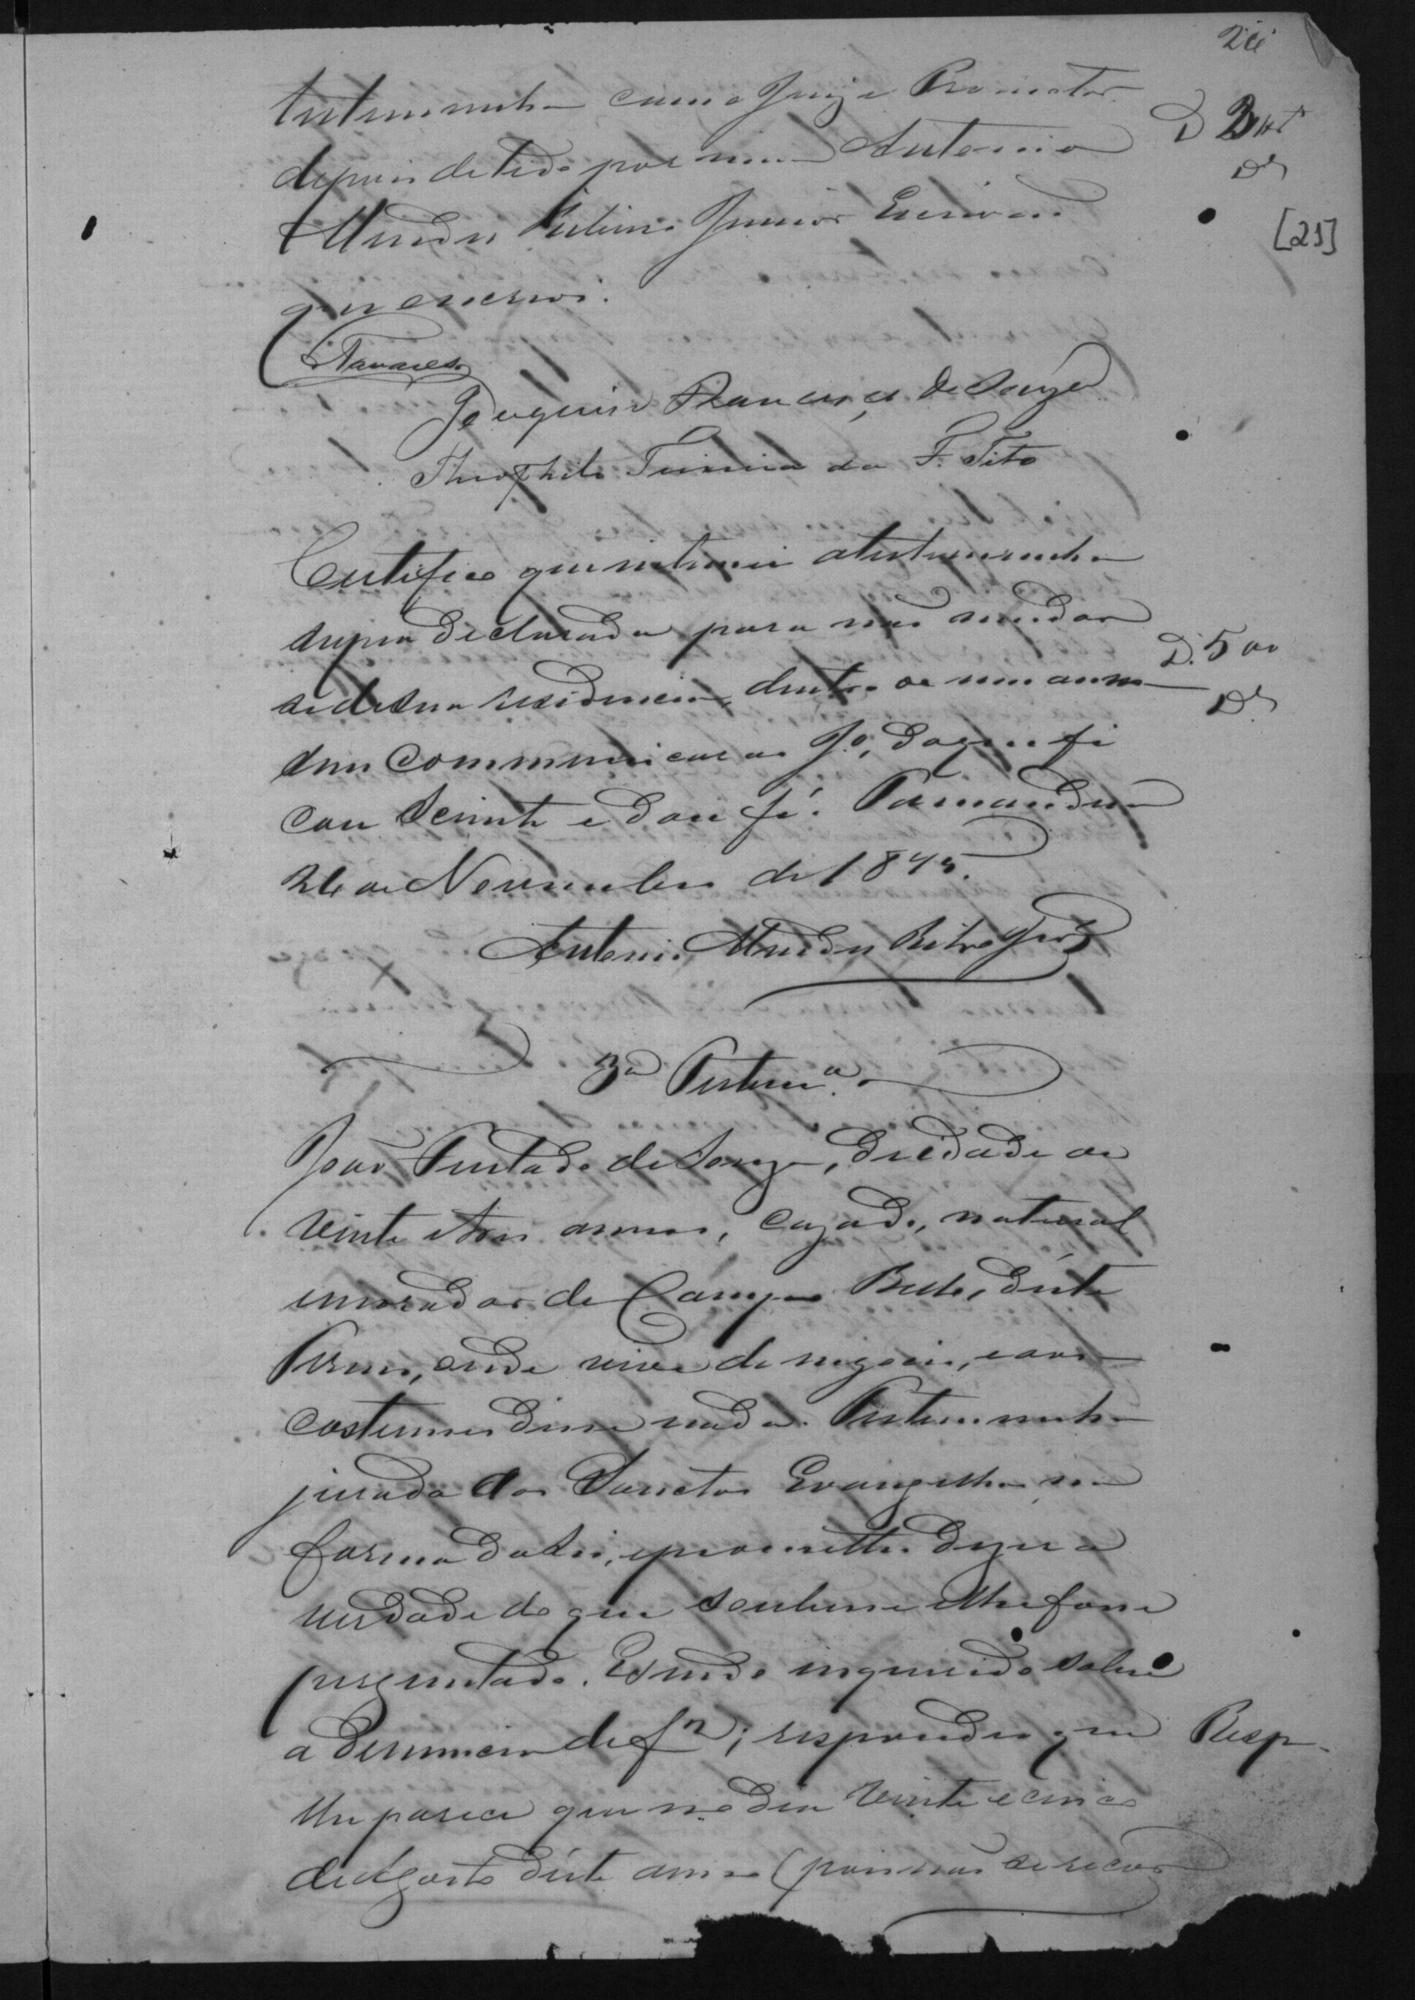 testemunha com o Juiz e Promotor
depois de lido por mim Antonio
Mendes Junior Escrivão
que escrevi.
Tavares
Joaquim Francisco de Souza
Theophilo Teixeira da F. Tito
Certifico que intimei a testemunha
supra declarada para não mudar
se de sua residencia, dentro de um anno
sem communicar ao Jo, do que fi
cou sciente e dou fé.
26 de Novembro de 1875.
Antonio Mendes Jor
3a Testema
João Furtado de Souza, de edade de
vinte e tres annos, cazado, natural
e morador de Campo Bello, d'este
Termo, onde vive de negocio, e aos
costumes disse nada. Testemunha
jurada aos Sanctos Evangelhos na
forma da Lei, e prometteu dizer a
verdade do que soubesse e lhe fosse
perguntado. E sendo inquirido sobre
a denuncia de f; respondeu que
lhe parece que no dia vinte e cinco
de Agosto d'este anno (pois não se recor
D
[21]
D. 500
Resp